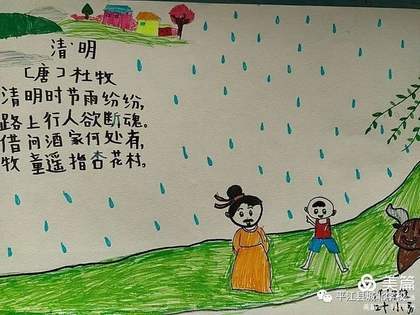 清明
〔唐〕杜牧
清明时节雨纷纷，
路上行人欲断魂。
借问酒家何处有，
牧童遥指杏花村，
美篇
平江县城